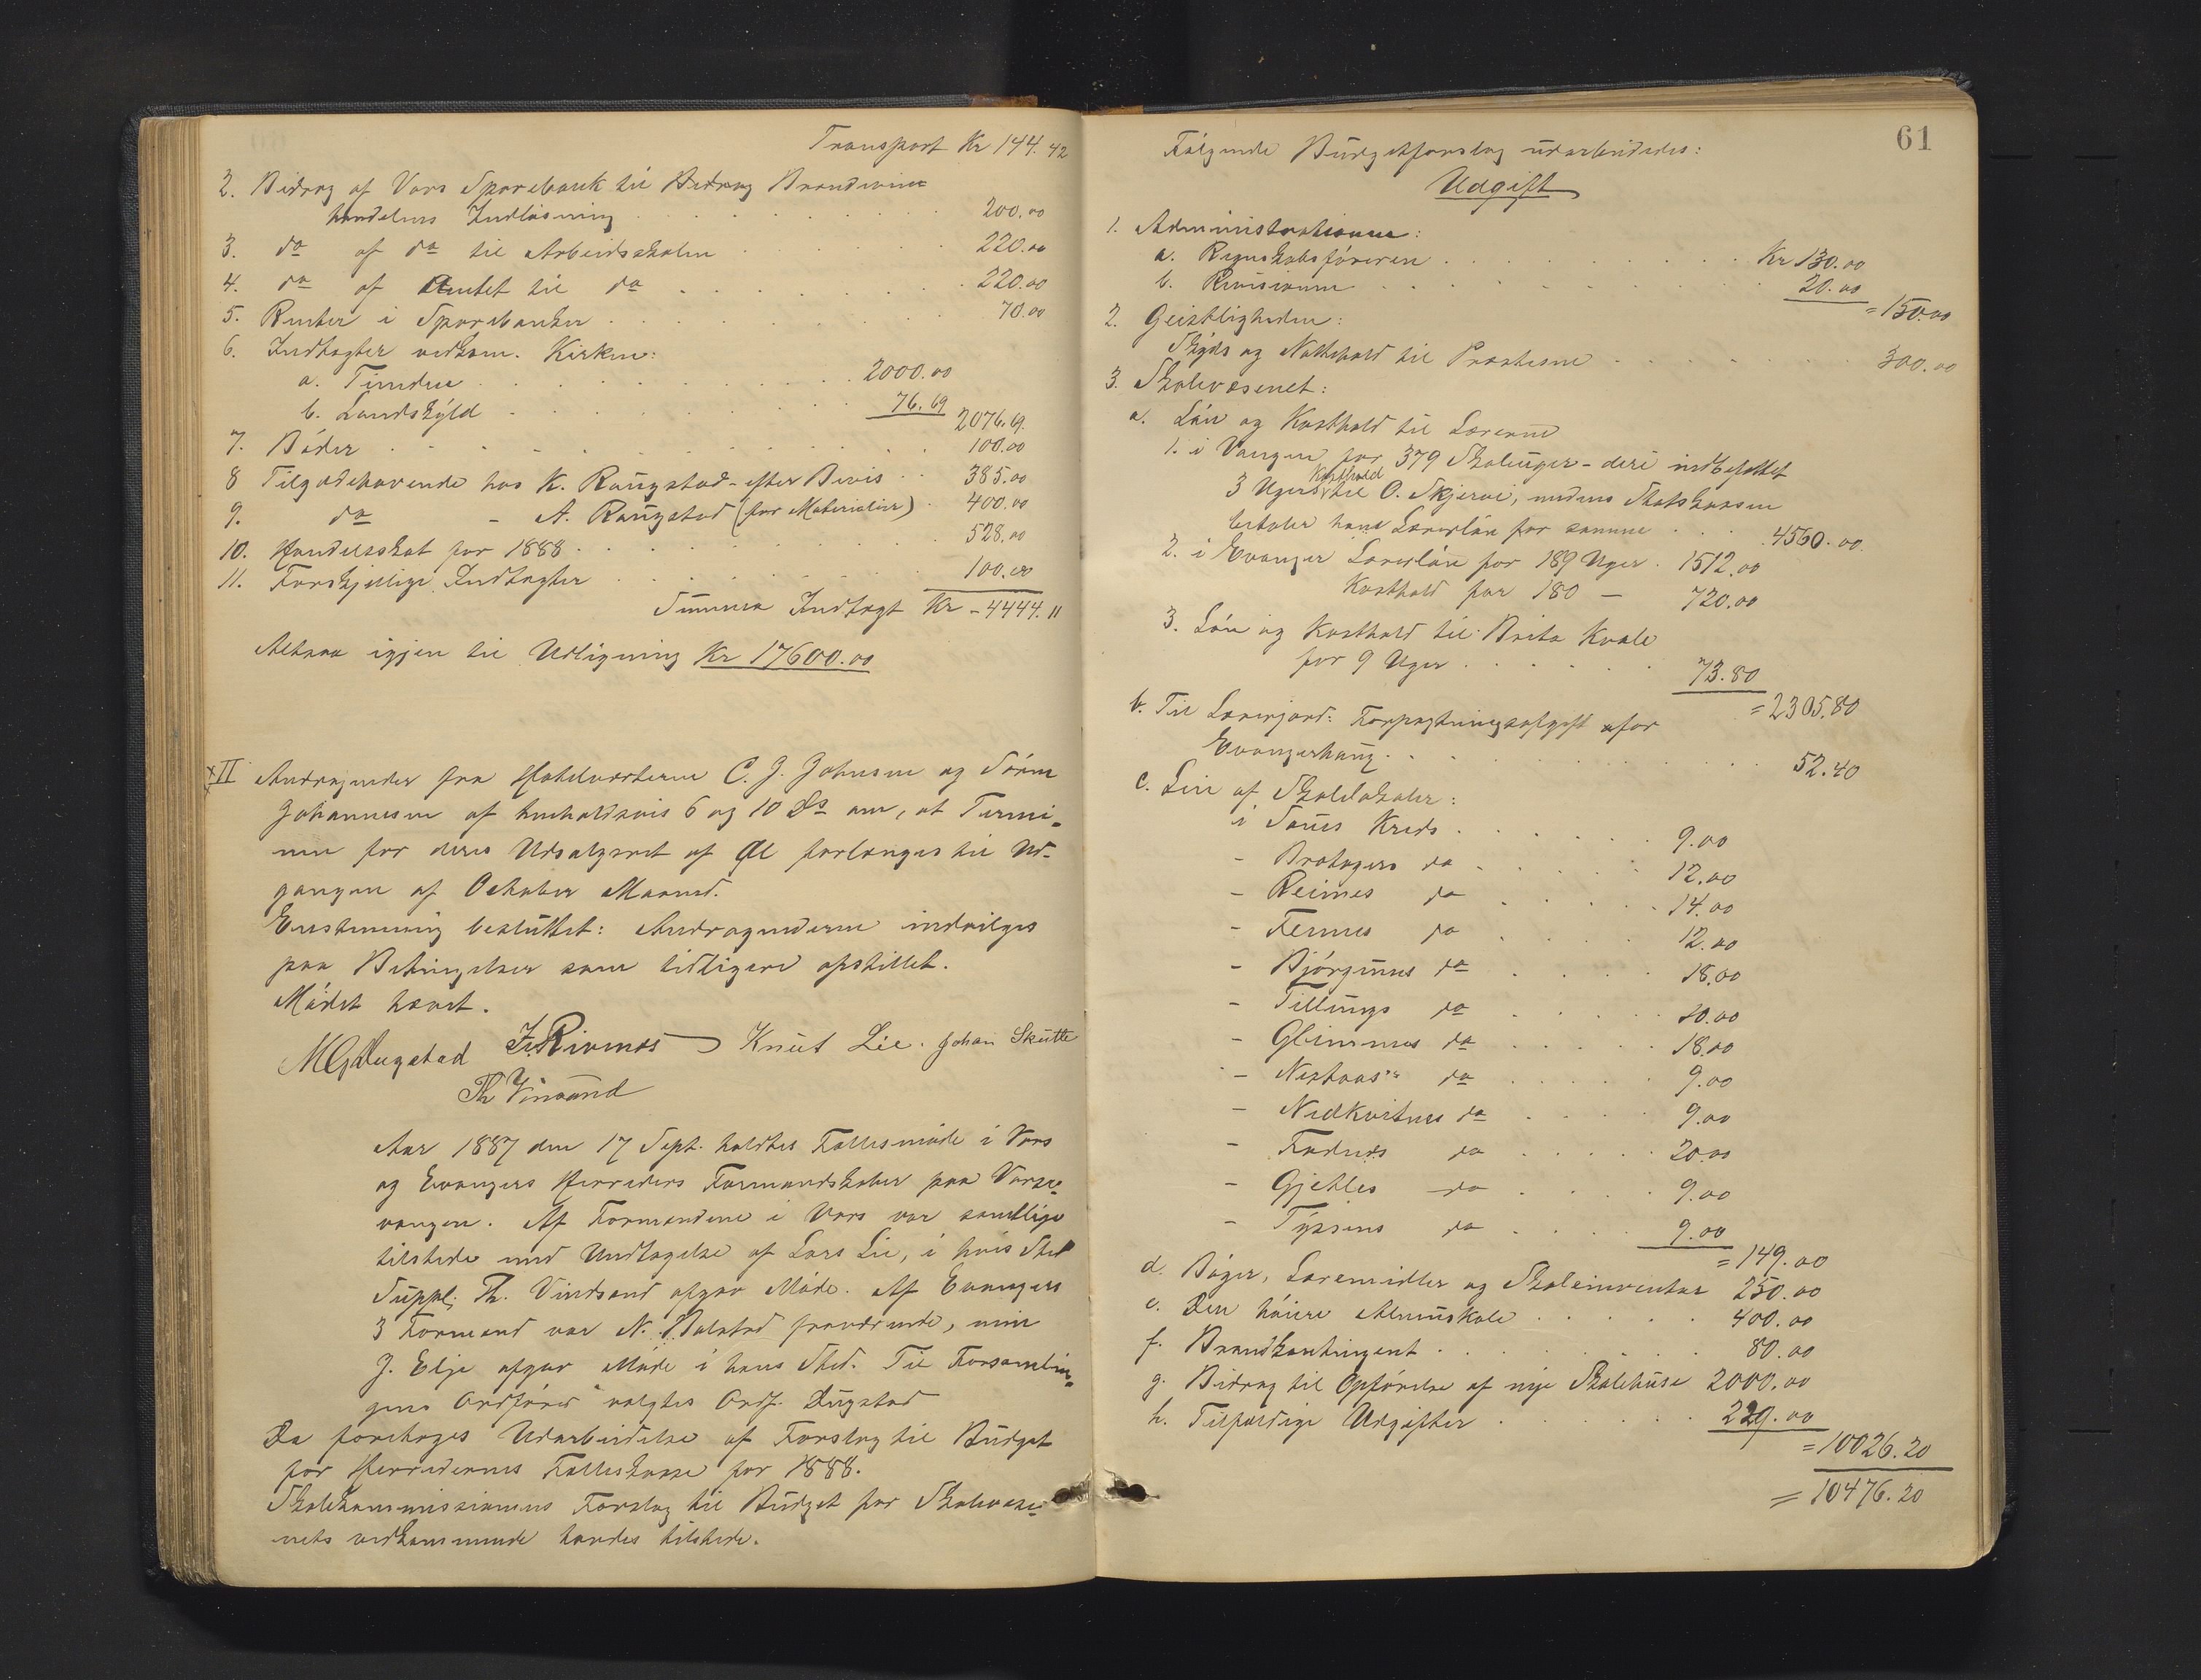 Transport Kr 144.42
2. Bidrag af Vors Sparebank til Bidrag Brændevins
handelens Indløsning . . . 200.00
3. do af do til Arbeidsskolen . . . 220.00
4. do af Amtet til do . . . 220.00
5. Renter i Sparebanken . . . 70.00
6. Indtægter vedkom. Kirken:
a. Tienden . . . 2000.00
b. Landskyld . . . 76.69
2076.69.
7. Bøder . . . 100.00
8 Tilgodehavende hos K. Raugstad - efter Bevis . . 385.00
9. do - A. Raugstad (for Materialier) . 400.00
10. Handelsskat for 1888 . . . 528.00
11. Forskjellige Indtægter . . . 100.00
Summa Indtægt Kr - 4444.11
Altsaa igjen til Udligning Kr 17600.00
XII Andragender fra Hotelværterne C. J. Johnsen og Søren
Johannesen af henholdsvis 6 og 10 ds om, at Termi-
nen for deres Udsalgsret af Øl forlænges til Ud-
gangen af October Maaned.
Enstemmig besluttet: Andragenderne indvilges
paa Betingelser som tidligere opstillet.
Mødet hævet.
MGDugstad Knut Lie. Johan Skutle
Th Vinsand
Aar 1887 den 17 Sept. holdtes Fællesmøde i Vors
og Evangers Herreders Formandskaber paa Vorse-
vangen. Af Formændene i Vors var samtlige
tilstede med Undtagelse af Lars Lie, i hvis Sted
Suppl. Th. Vindsand afgav Møde. Af Evangers
3 Formænd var N. Bolstad fraværende, men
J. Elje afgav Møde i hans Sted. Til Forsamlin-
gens Ordfører valgtes Ordf. Dugstad
Da foretoges Udarbeidelse af Forslag til Budget
for Herredernes Fælleskasse for 1888.
Skolekommissionens Forslag til Budget for Skolevæse-
nets vedkommende havdes tilstede.
61
Følgende Budgetforslag udarbeidedes:
Udgift
1. Administrationen:
a. Regnskabsføreren . . . Kr 130.00
b. Revisionen . . . 20.00
= 150.00
2. Geistligheden:
Skyds og Natthold til Præsterne . . . 300.00
3. Skolevæsenet:
a. Løn og Kosthold til Lærerne
1. i Vangen for 379 Skoleuger - deri indbefattet
3 Ugers Kosthold til O. Skjervei, medens Statskassen
betaler hans Lærerløn for samme . . . 4560.00
2. i Evanger Lærerløn for 189 Uger . 1512.00
Kosthold for 180 — 720.00
3. Løn og Kosthold til Brita Kvale
for 9 Uger . . . 73.80
= 2305.80
b. Til Lærerjord: Forpagtningsafgift for
Evangerhaug . . . 52.40
c. Leie af Skolelokaler:
i Saues Kreds . . . 9.00
- Bratagers do . . . 12.00
- Reimes do . . . 14.00
- Fennes do . . . 12.00
- Bjørgums do . . . 18.00
- Tillungs do . . . 10.00
- Glimmes do . . . 18.00
- Nestaas's do . . . 9.00
- Nedkvitnes do . . . 9.00
- Fadnes do . . . 20.00
- Gjelles do . . . 9.00
- Tyssens do . . . 9.00
= 149.00
d. Bøger, Læremidler og Skoleinventar 250.00
e. Den høiere Almuskole . . . 400.00
f. Brandkontingent . . . 80.00
g. Bidrag til Opførelse af nye Skolehuse 2000.00
h. Tilfældige Udgifter . . . 229.00
= 10026.20
= 10476.20